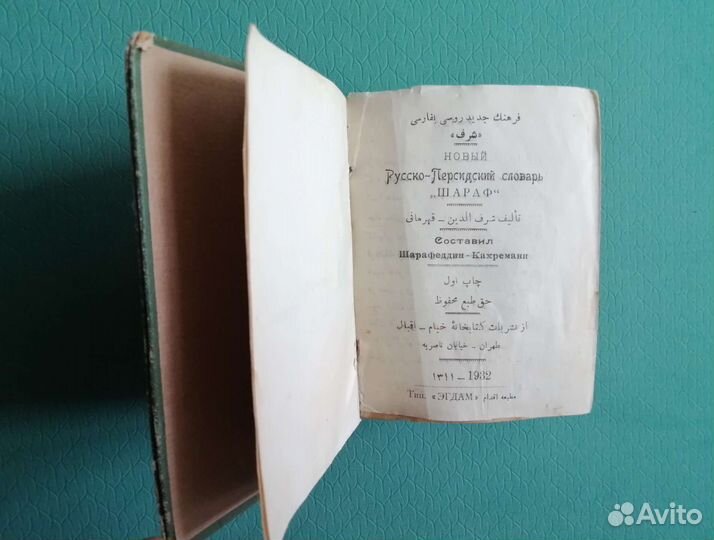 فرهنك جديد روسى بفارسى
«شرف»
НОВЫЙ
Русско-Персидский словарь
„ШАРАФ“
تأليف شرف الدين - قهرمانى
Составил
Шарафеддин-Кахремани
چاپ اول
حق طبع محفوظ
از نشريات كتابخانهٔ خيام - اقبال
طهران - خيابان ناصريه
١٣١١ — 1932
Тип. «ЭГДАМ» مطبعه اقدام
Avito